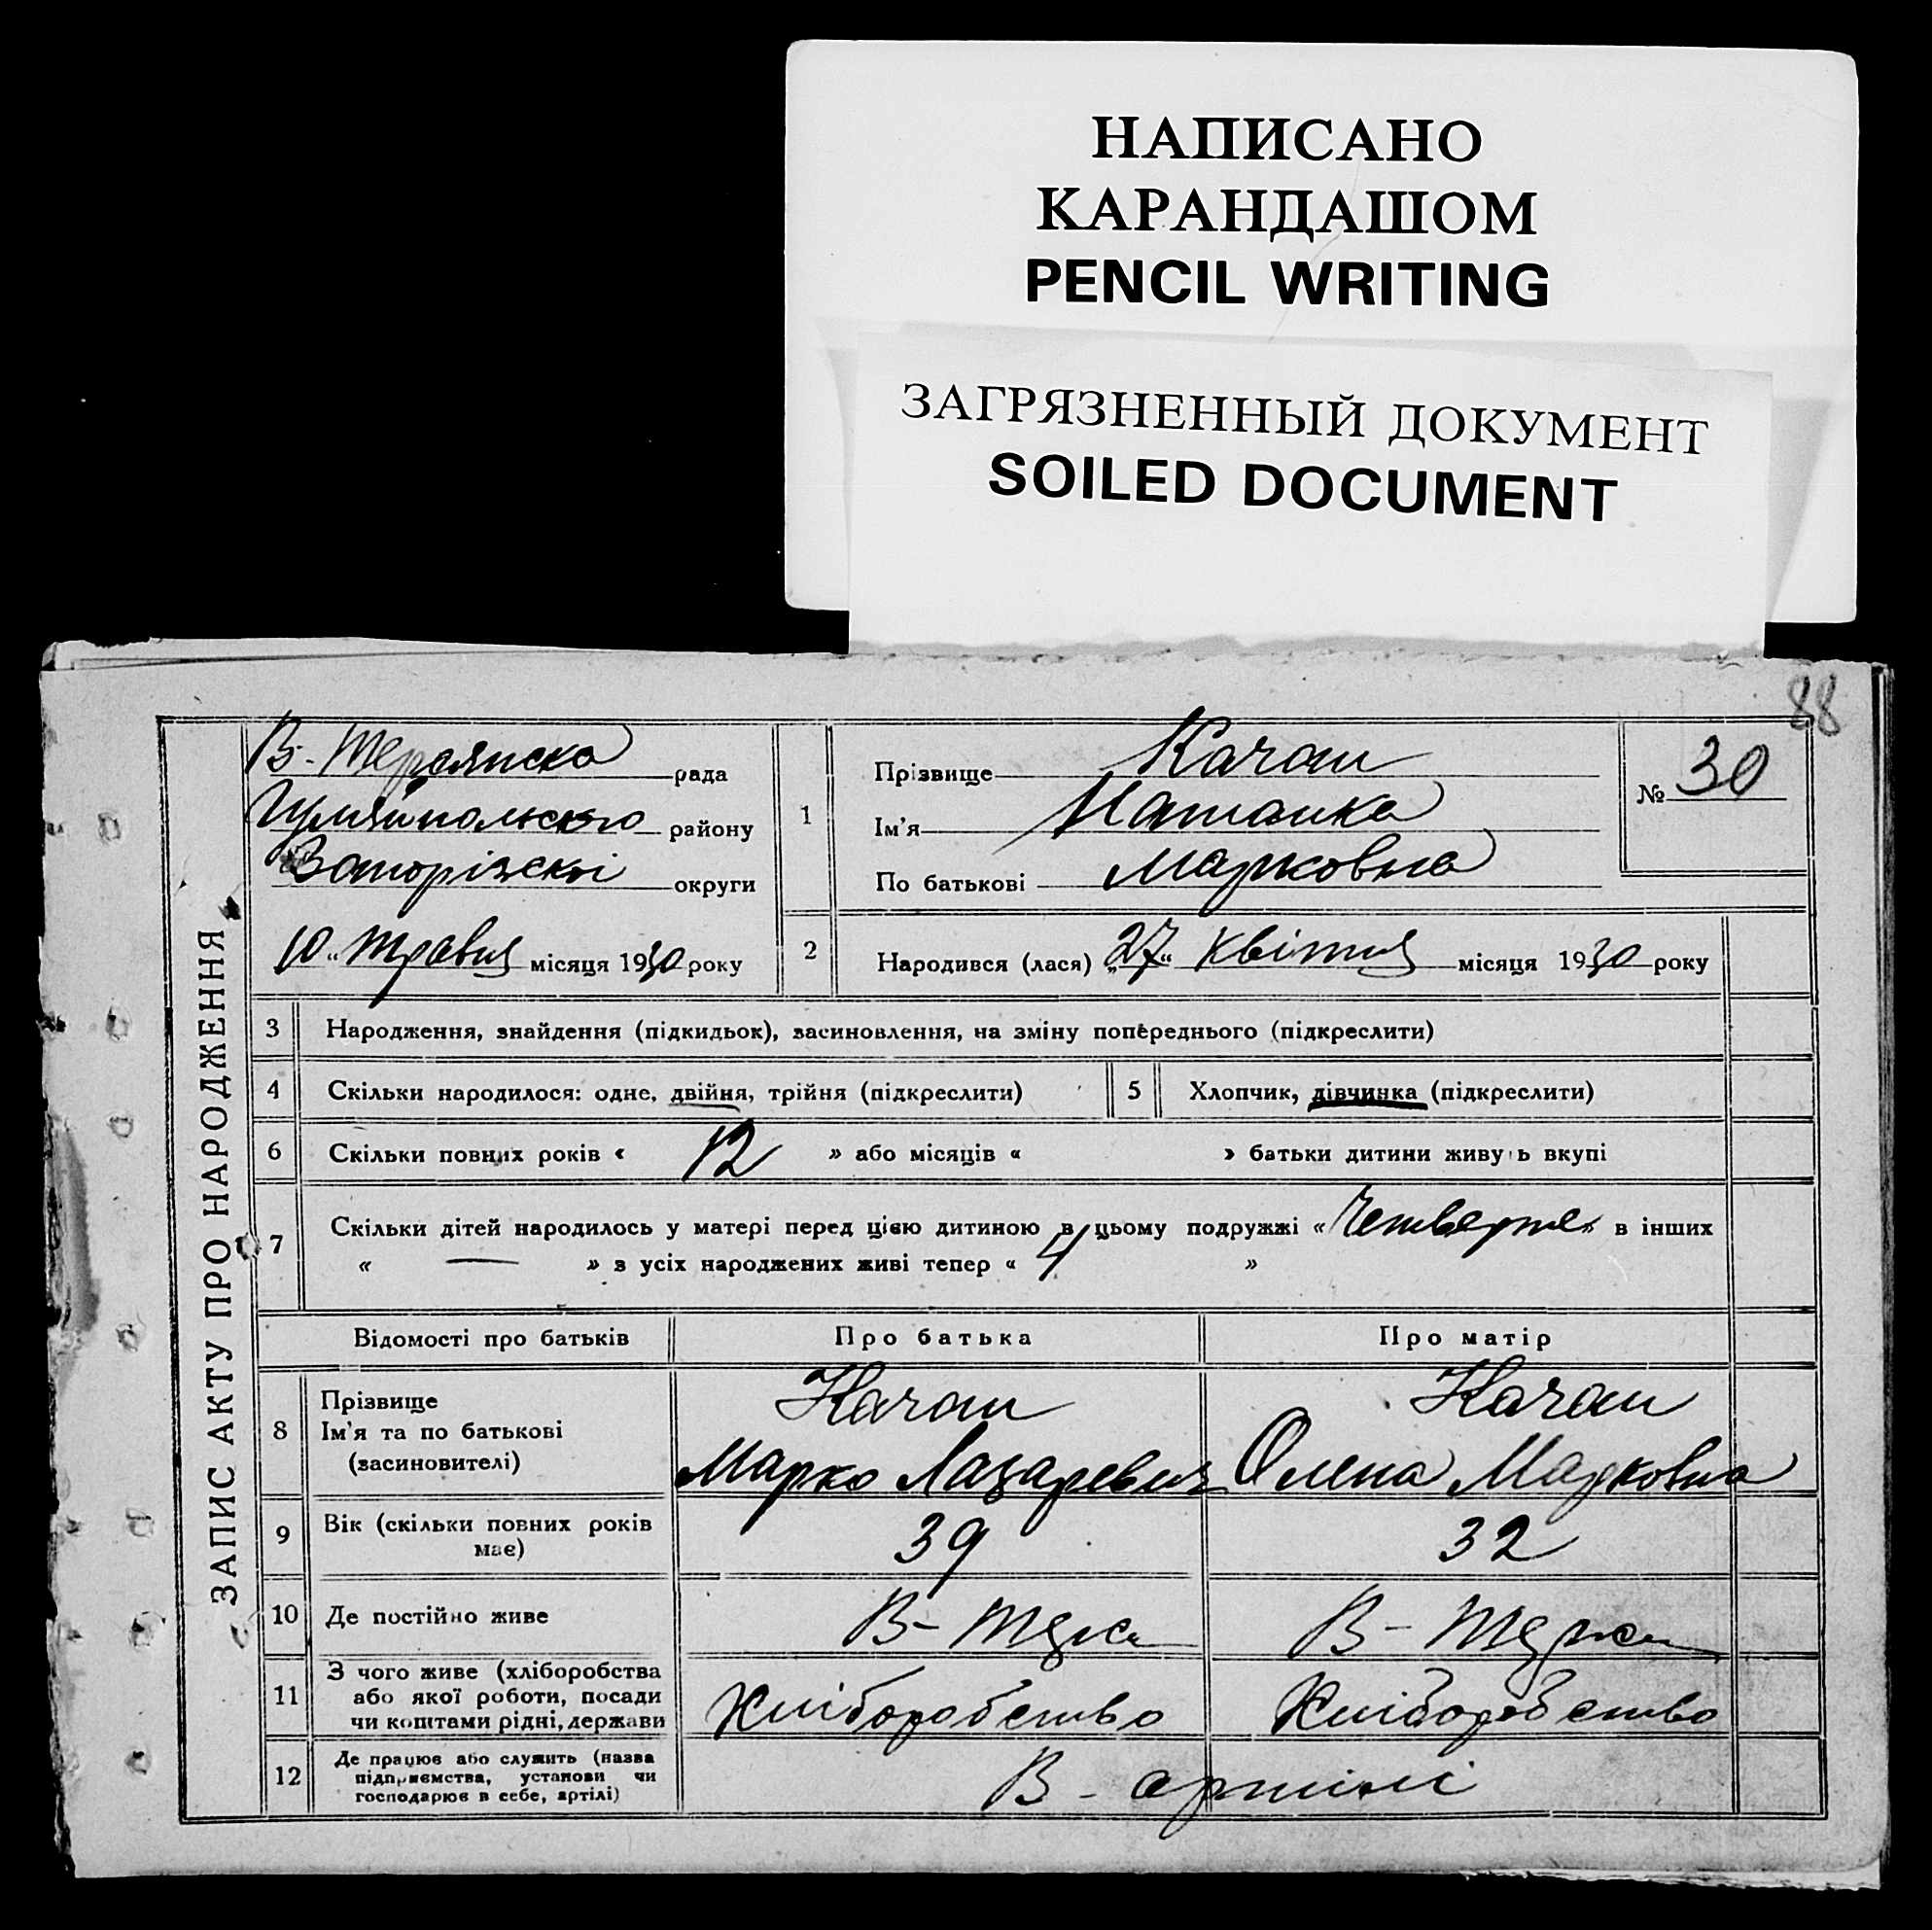 НАПИСАНО
КАРАНДАШОМ
PENCIL WRITING
ЗАГРЯЗНЕННЫЙ ДОКУМЕНТ
SOILED DOCUMENT
88
ЗАПИС АКТУ ПРО НАРОДЖЕННЯ
В-Терсянска рада
Гуляйпольского району
Запорізскої округи
10 „ травня місяця 1930 року
1
Прізвище Качан
Ім'я Наталка
По батькові Марковна
№ 30
2 Народився (лася) „27“ квітня місяця 1930 року
3 Народження, знайдення (підкидьок), засиновлення, на зміну попереднього (підкреслити)
4 Скільки народилося: одне, двійня, трійня (підкреслити) 5 Хлопчик, дівчинка (підкреслити)
6 Скільки повних років « 12 » або місяців « » батьки дитини живуть вкупі
7 Скільки дітей народилось у матері перед цією дитиною в цьому подружжі « Четверте » в інших
« — » з усіх народжених живі тепер « 4 »
Відомості про батьків Про батька Про матір
8 Прізвище Качан Качан
Ім'я та по батькові
(засиновителі) Марко Лазаревич Олена Марковна
9 Вік (скільки повних років має) 39 32
10 Де постійно живе В-Терса В-Терса
11 З чого живе (хліборобства
або якої роботи, посади
чи коштами рідні, держави Хліборобство Хліборобство
12 Де працює або служить (назва
підприємства, установи чи
господарює в себе, артілі) В - артілі